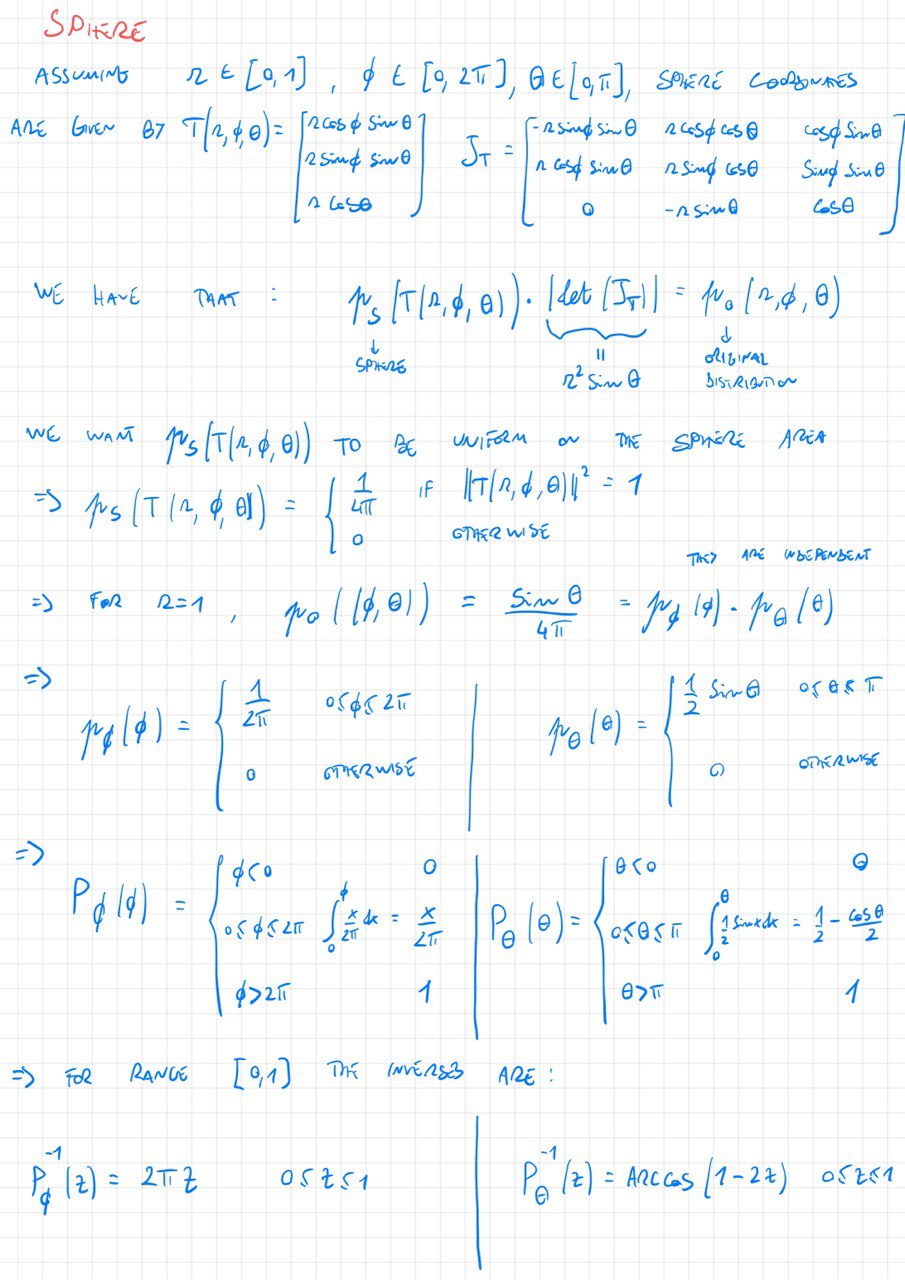 SPHERE
ASSUMING r ∈ [0,1] , φ ∈ [0, 2π], θ ∈ [0,π], SPHERE COORDINATES
ARE GIVEN BY T(r,φ,θ) = [r cosφ sinθ ; r sinφ sinθ ; r cosθ] J_T = [-r sinφ sinθ r cosφ cosθ cosφ sinθ ; r cosφ sinθ r sinφ cosθ sinφ sinθ ; 0 -r sinθ cosθ]
WE HAVE THAT : p_s(T(r,φ,θ)) · |det(J_T)| = p_o(r,φ,θ)
↓ SPHERE || r² sinθ ↓ ORIGINAL DISTRIBUTION
WE WANT p_s(T(r,φ,θ)) TO BE UNIFORM ON THE SPHERE AREA
⇒ p_s(T(r,φ,θ)) = { 1/4π IF ||T(r,φ,θ)||² = 1
0 OTHERWISE
THEY ARE INDEPENDENT
⇒ FOR r=1 , p_o((φ,θ)) = sinθ/4π = p_φ(φ) · p_θ(θ)
⇒
p_φ(φ) = { 1/2π 0≤φ≤2π ; 0 OTHERWISE | p_θ(θ) = { 1/2 sinθ 0≤θ≤π ; 0 OTHERWISE
⇒
P_φ(φ) = { φ<0 0 ; 0≤φ≤2π ∫_0^φ x/2π dx = x/2π ; φ>2π 1 | P_θ(θ) = { θ<0 0 ; 0≤θ≤π ∫_0^θ 1/2 sinx dx = 1/2 - cosθ/2 ; θ>π 1
⇒ FOR RANGE [0,1] THE INVERSES ARE :
P_φ^-1(z) = 2πz 0≤z≤1 | P_θ^-1(z) = ARCCOS(1-2z) 0≤z≤1